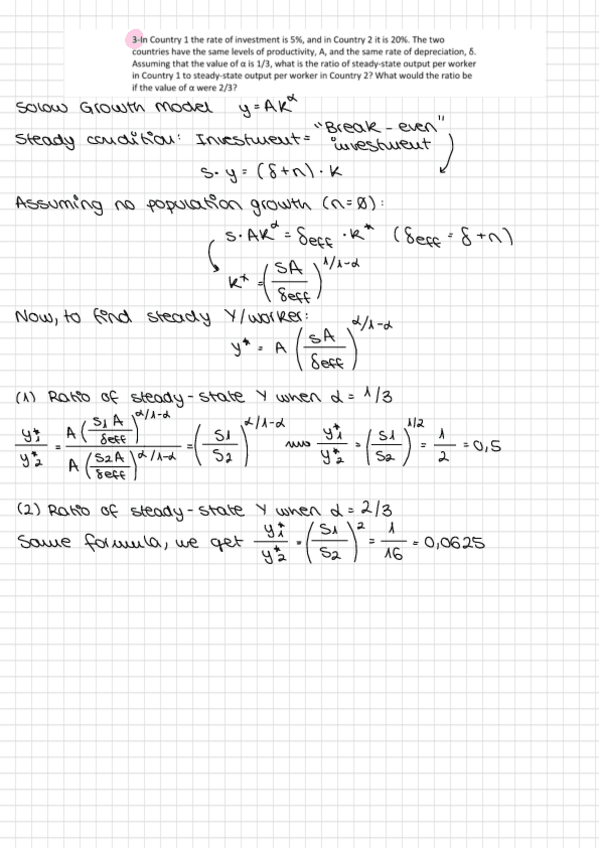 3-In Country 1 the rate of investment is 5%, and in Country 2 it is 20%. The two
countries have the same levels of productivity, A, and the same rate of depreciation, δ.
Assuming that the value of α is 1/3, what is the ratio of steady-state output per worker
in Country 1 to steady-state output per worker in Country 2? What would the ratio be
if the value of α were 2/3?
Solow Growth Model y = AK^α
Steady condition: Investment = "Break-even" investment
s · y = (δ+n) · k
Assuming no population growth (n=0):
s · AK^α = δeff · k* (δeff = δ+n)
k* = (SA/δeff)^1/1-α
Now, to find steady Y/worker:
y* = A (SA/δeff)^α/1-α
(1) Ratio of steady-state Y when α = 1/3
y1*/y2* = A(S1A/δeff)^α/1-α / A(S2A/δeff)^α/1-α = (S1/S2)^α/1-α → y1*/y2* = (S1/S2)^1/2 = 1/2 = 0,5
(2) Ratio of steady-state Y when α = 2/3
Same formula, we get y1*/y2* = (S1/S2)^2 = 1/16 = 0,0625